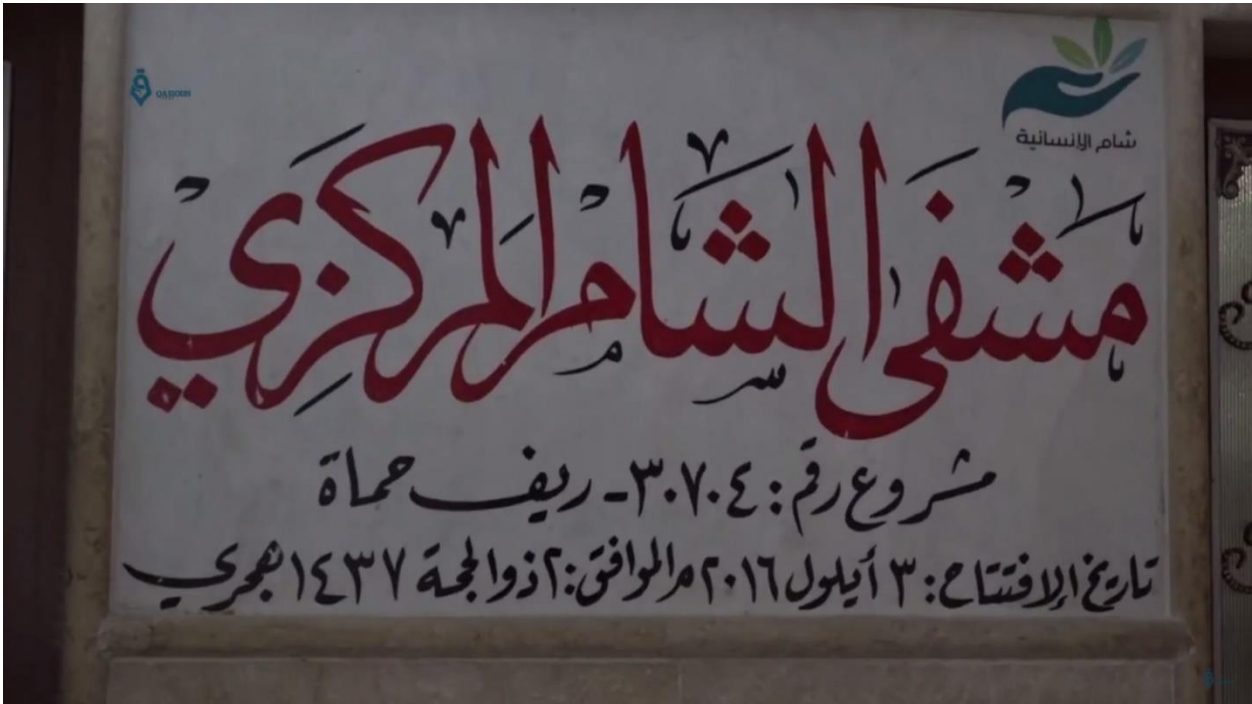 QASIOUN
شام الإنسانية
مشفى الشام المركزي
مشروع رقم : ٣٠٧٠٤ - ريف حماة
تاريخ الإفتتاح : ٣ أيلول ٢٠١٦ م الموافق : ٢ ذو الحجة ١٤٣٧ هجري